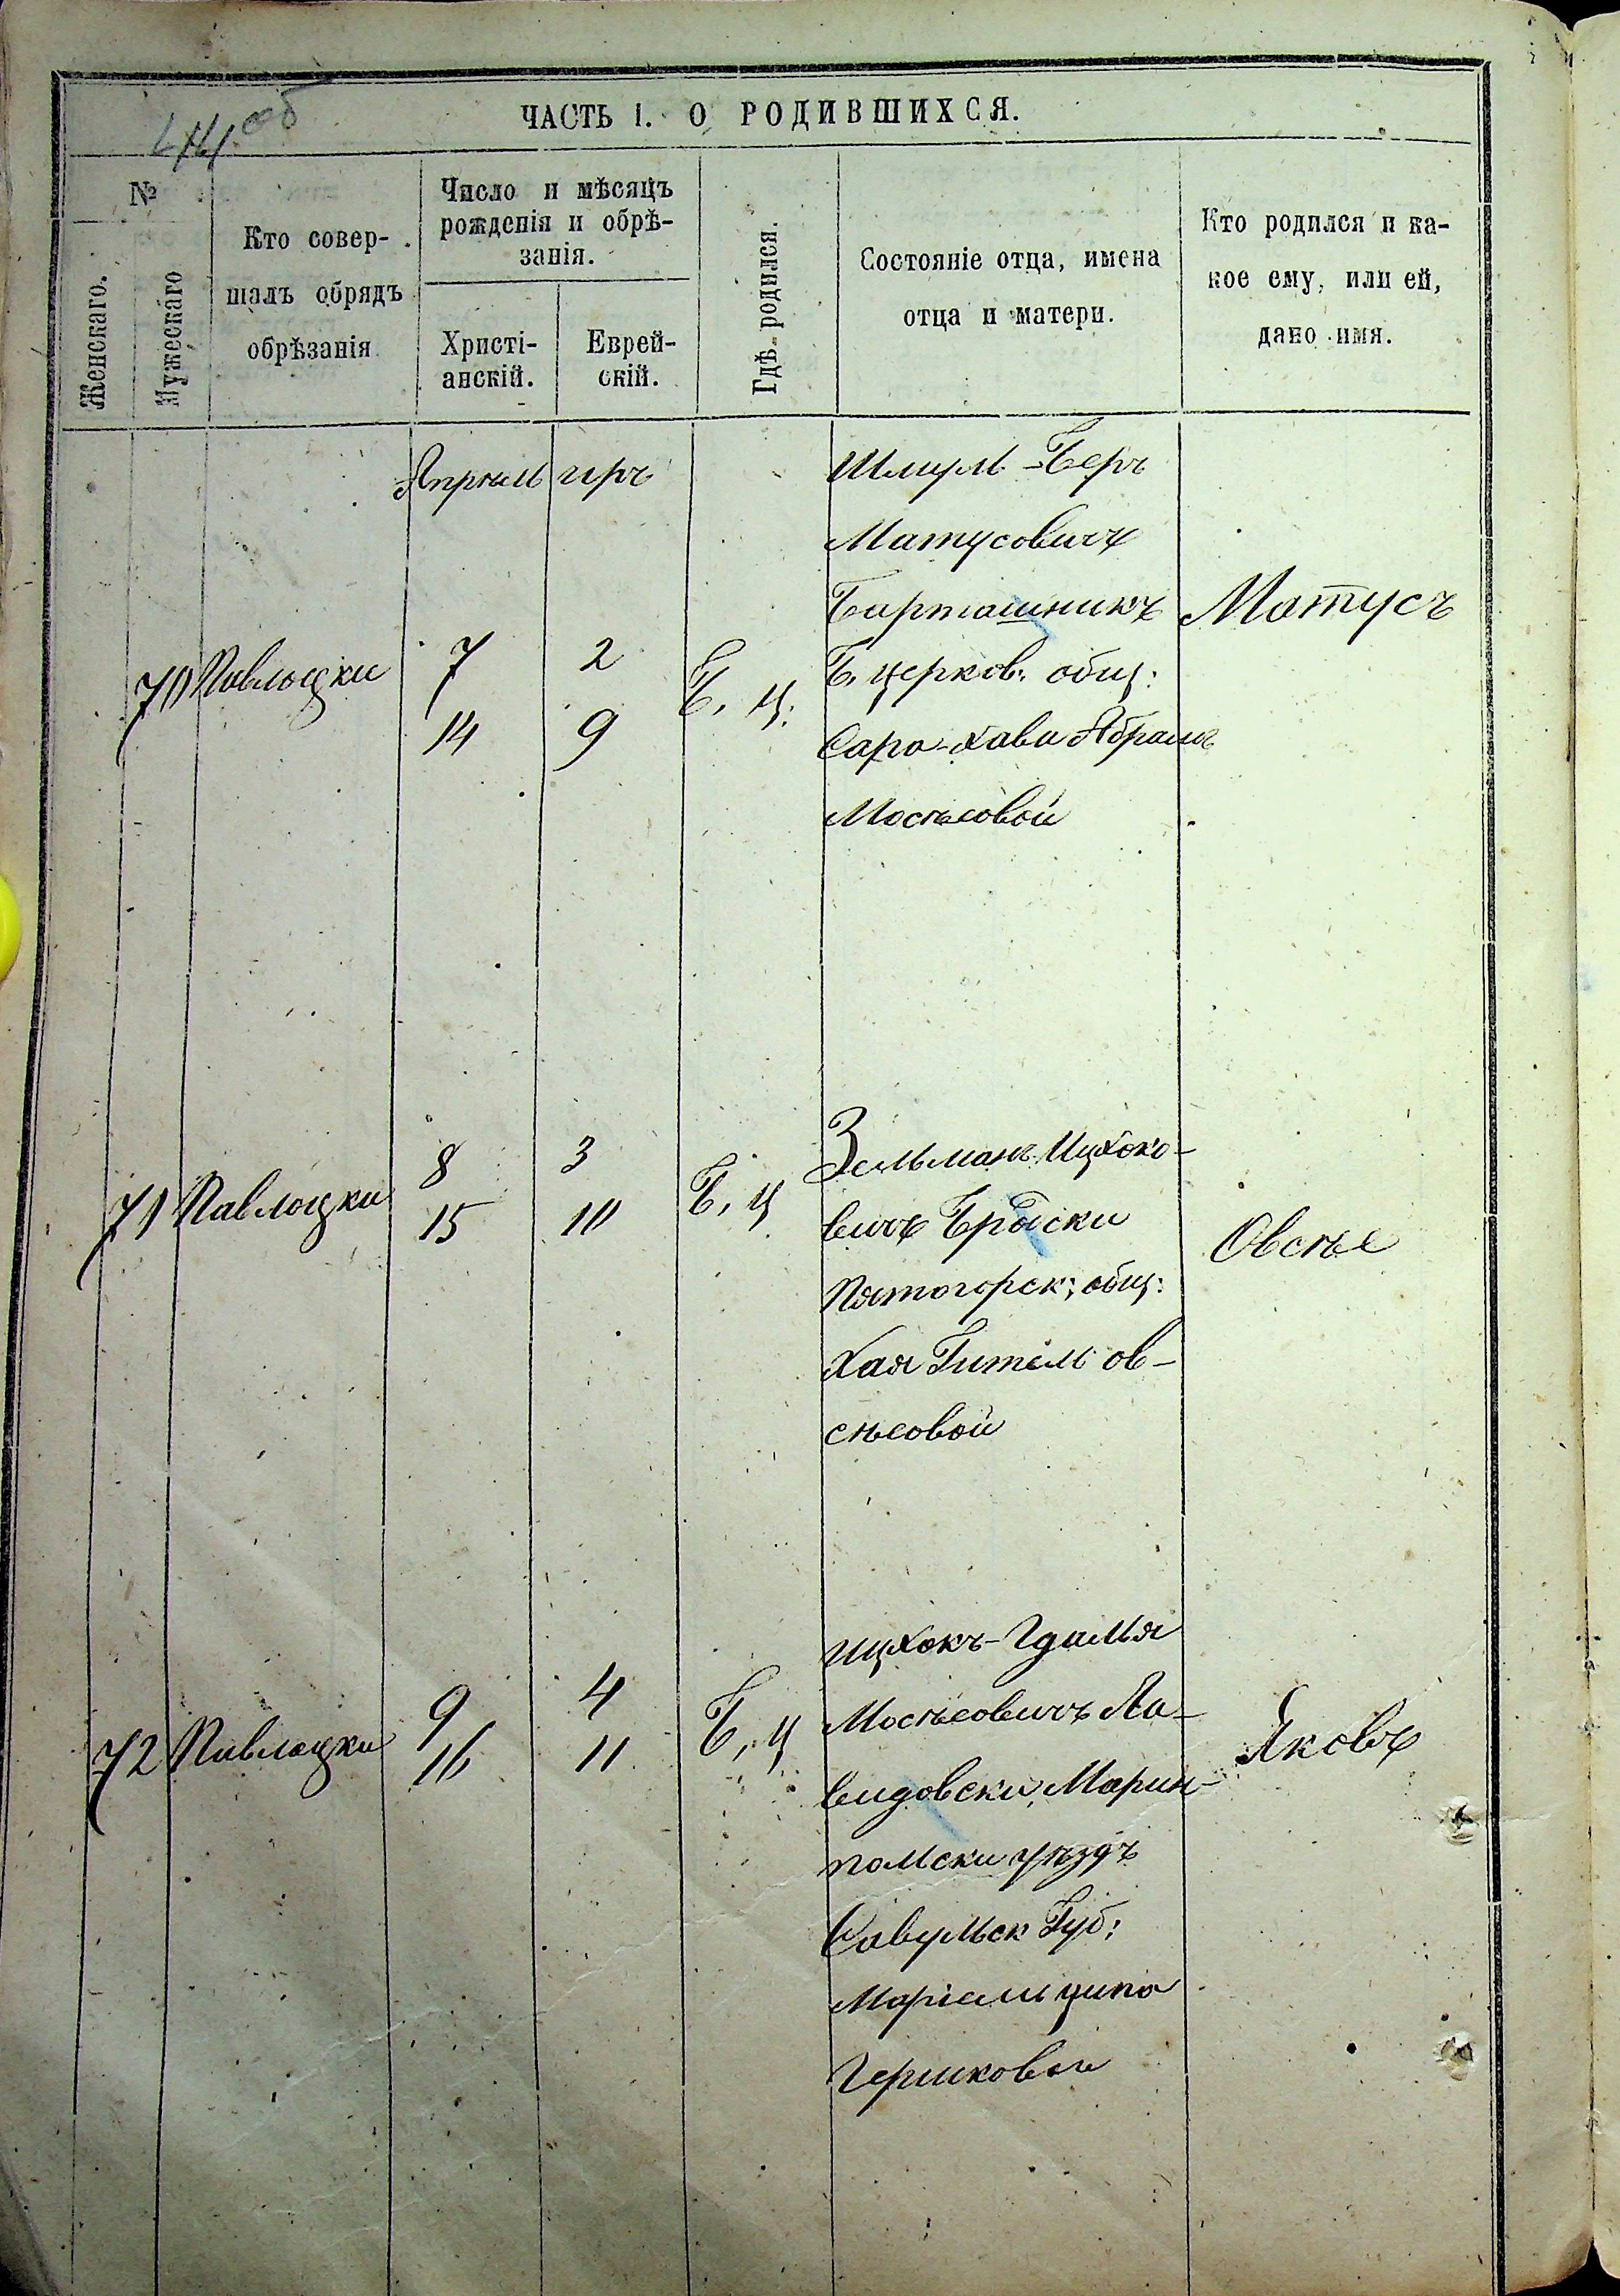 44 об
ЧАСТЬ I. О РОДИВШИХСЯ.
№
Женскаго.
Мужескаго
Кто совер-
шалъ обрядъ
обрѣзанія
Число и мѣсяцъ
рожденія и обрѣ-
занія.
Христі-
анскій.
Еврей-
скій.
Гдѣ родился.
Состояніе отца, имена
отца и матери.
Кто родился и ка-
кое ему, или ей,
дано имя.
Апрѣль
иръ
70
Павлоцки
7
14
2
9
Б. ц:
Шмуль-Беръ
Матусовичъ
Барташникъ
Б. церков: общ:
Сара-Хава Абрамъ
Мосѣсовой
Матусъ
71
Павлоцки
8
15
3
10
Б. ц
Зельманъ Ицхоко-
вичъ Бродски
Пятогорск: общ:
Хая Гитель ов-
сѣсовой
Овсѣе
72
Павлоцки
9
16
4
11
Б. ц
Ицхокъ-Гдалья
Мосѣсовичъ Да-
видовски Марин-
польски уѣздъ
Савульск Губ:
Маріемъ ципа
Гершковой
Яковъ